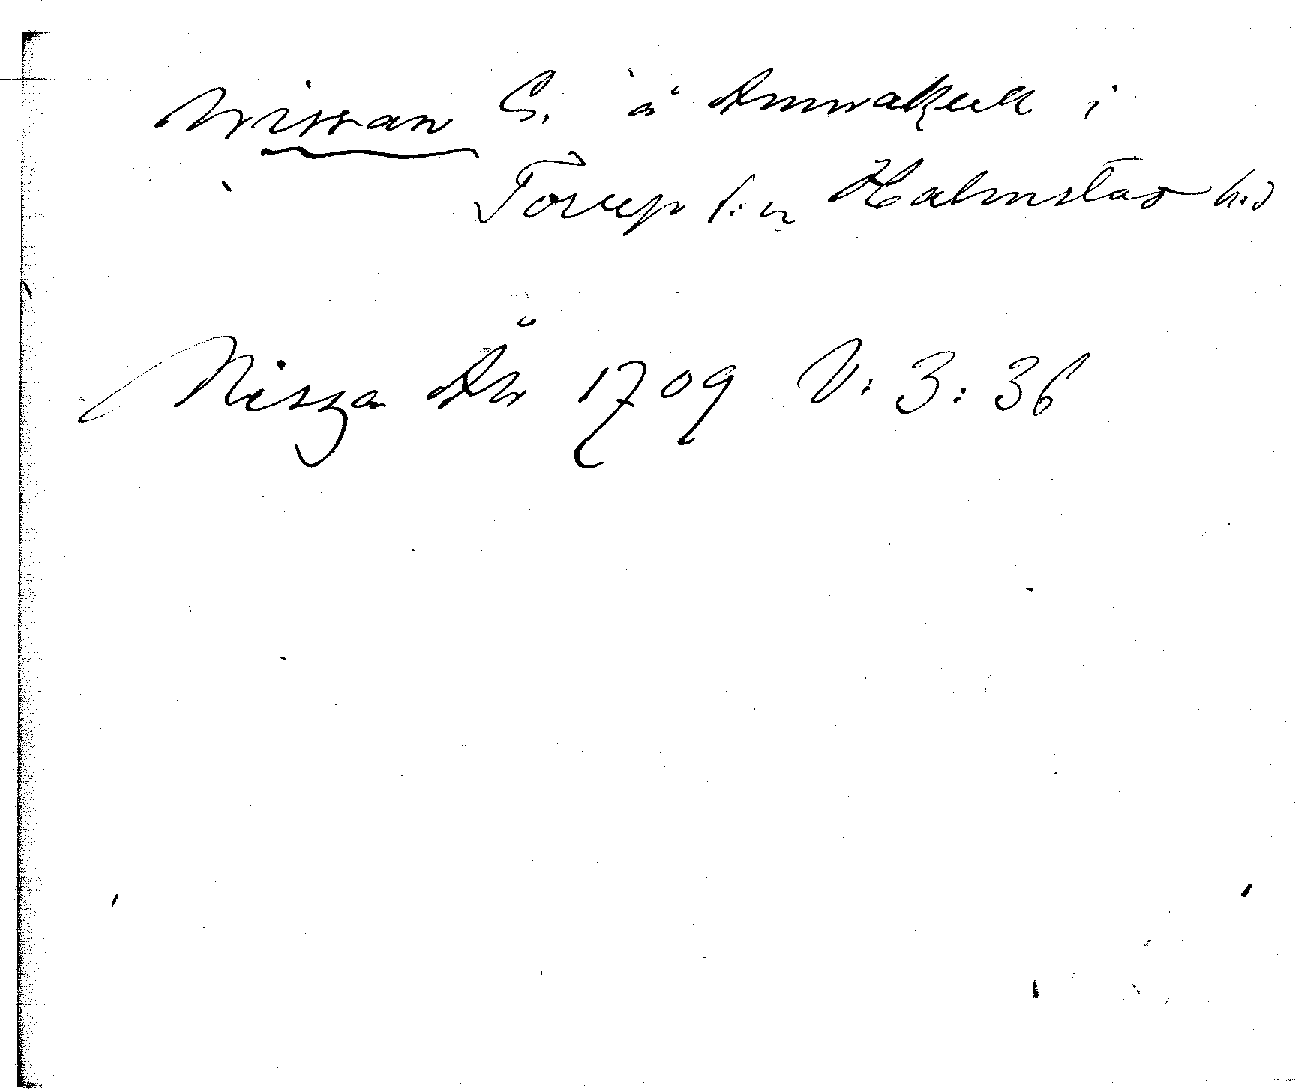 Nissan S. å Ammakull i
Torup s:n Halmstad h:d
Nisza Åh 1709 V: 3: 36